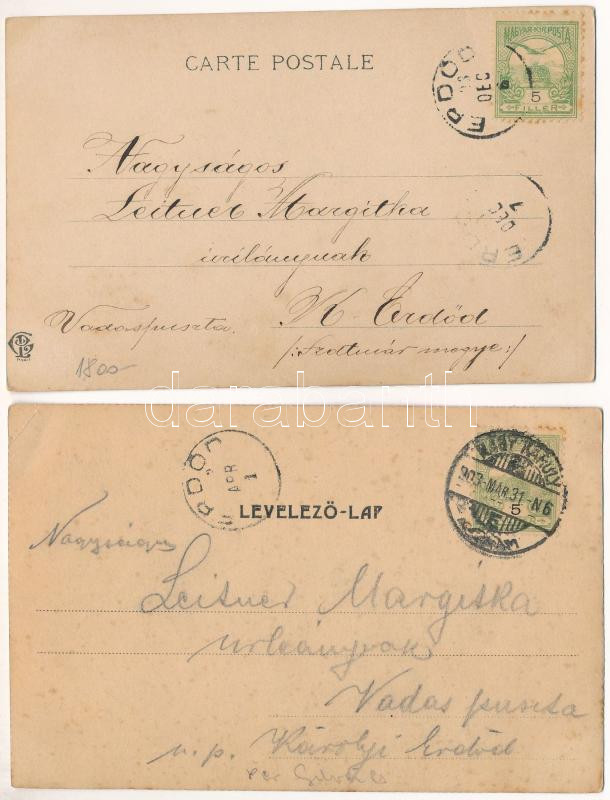 CARTE POSTALE
ERDŐD
DEC
MAGYAR KIR. POSTA
5
FILLER
Nagyságos
Leitner Margitka
urilánynak
K-Erdőd
Vadaspuszta.
/:Szatmár megye:/
1800-
darabanth
ERDŐD
APR
1
NAGY KÁROLY
903 MAR. 31 - N6
5
LEVELEZŐ-LAP
Nagyságos
Leitner Margitka
urleánynak
Vadas puszta
u. p. Károlyi Erdőd